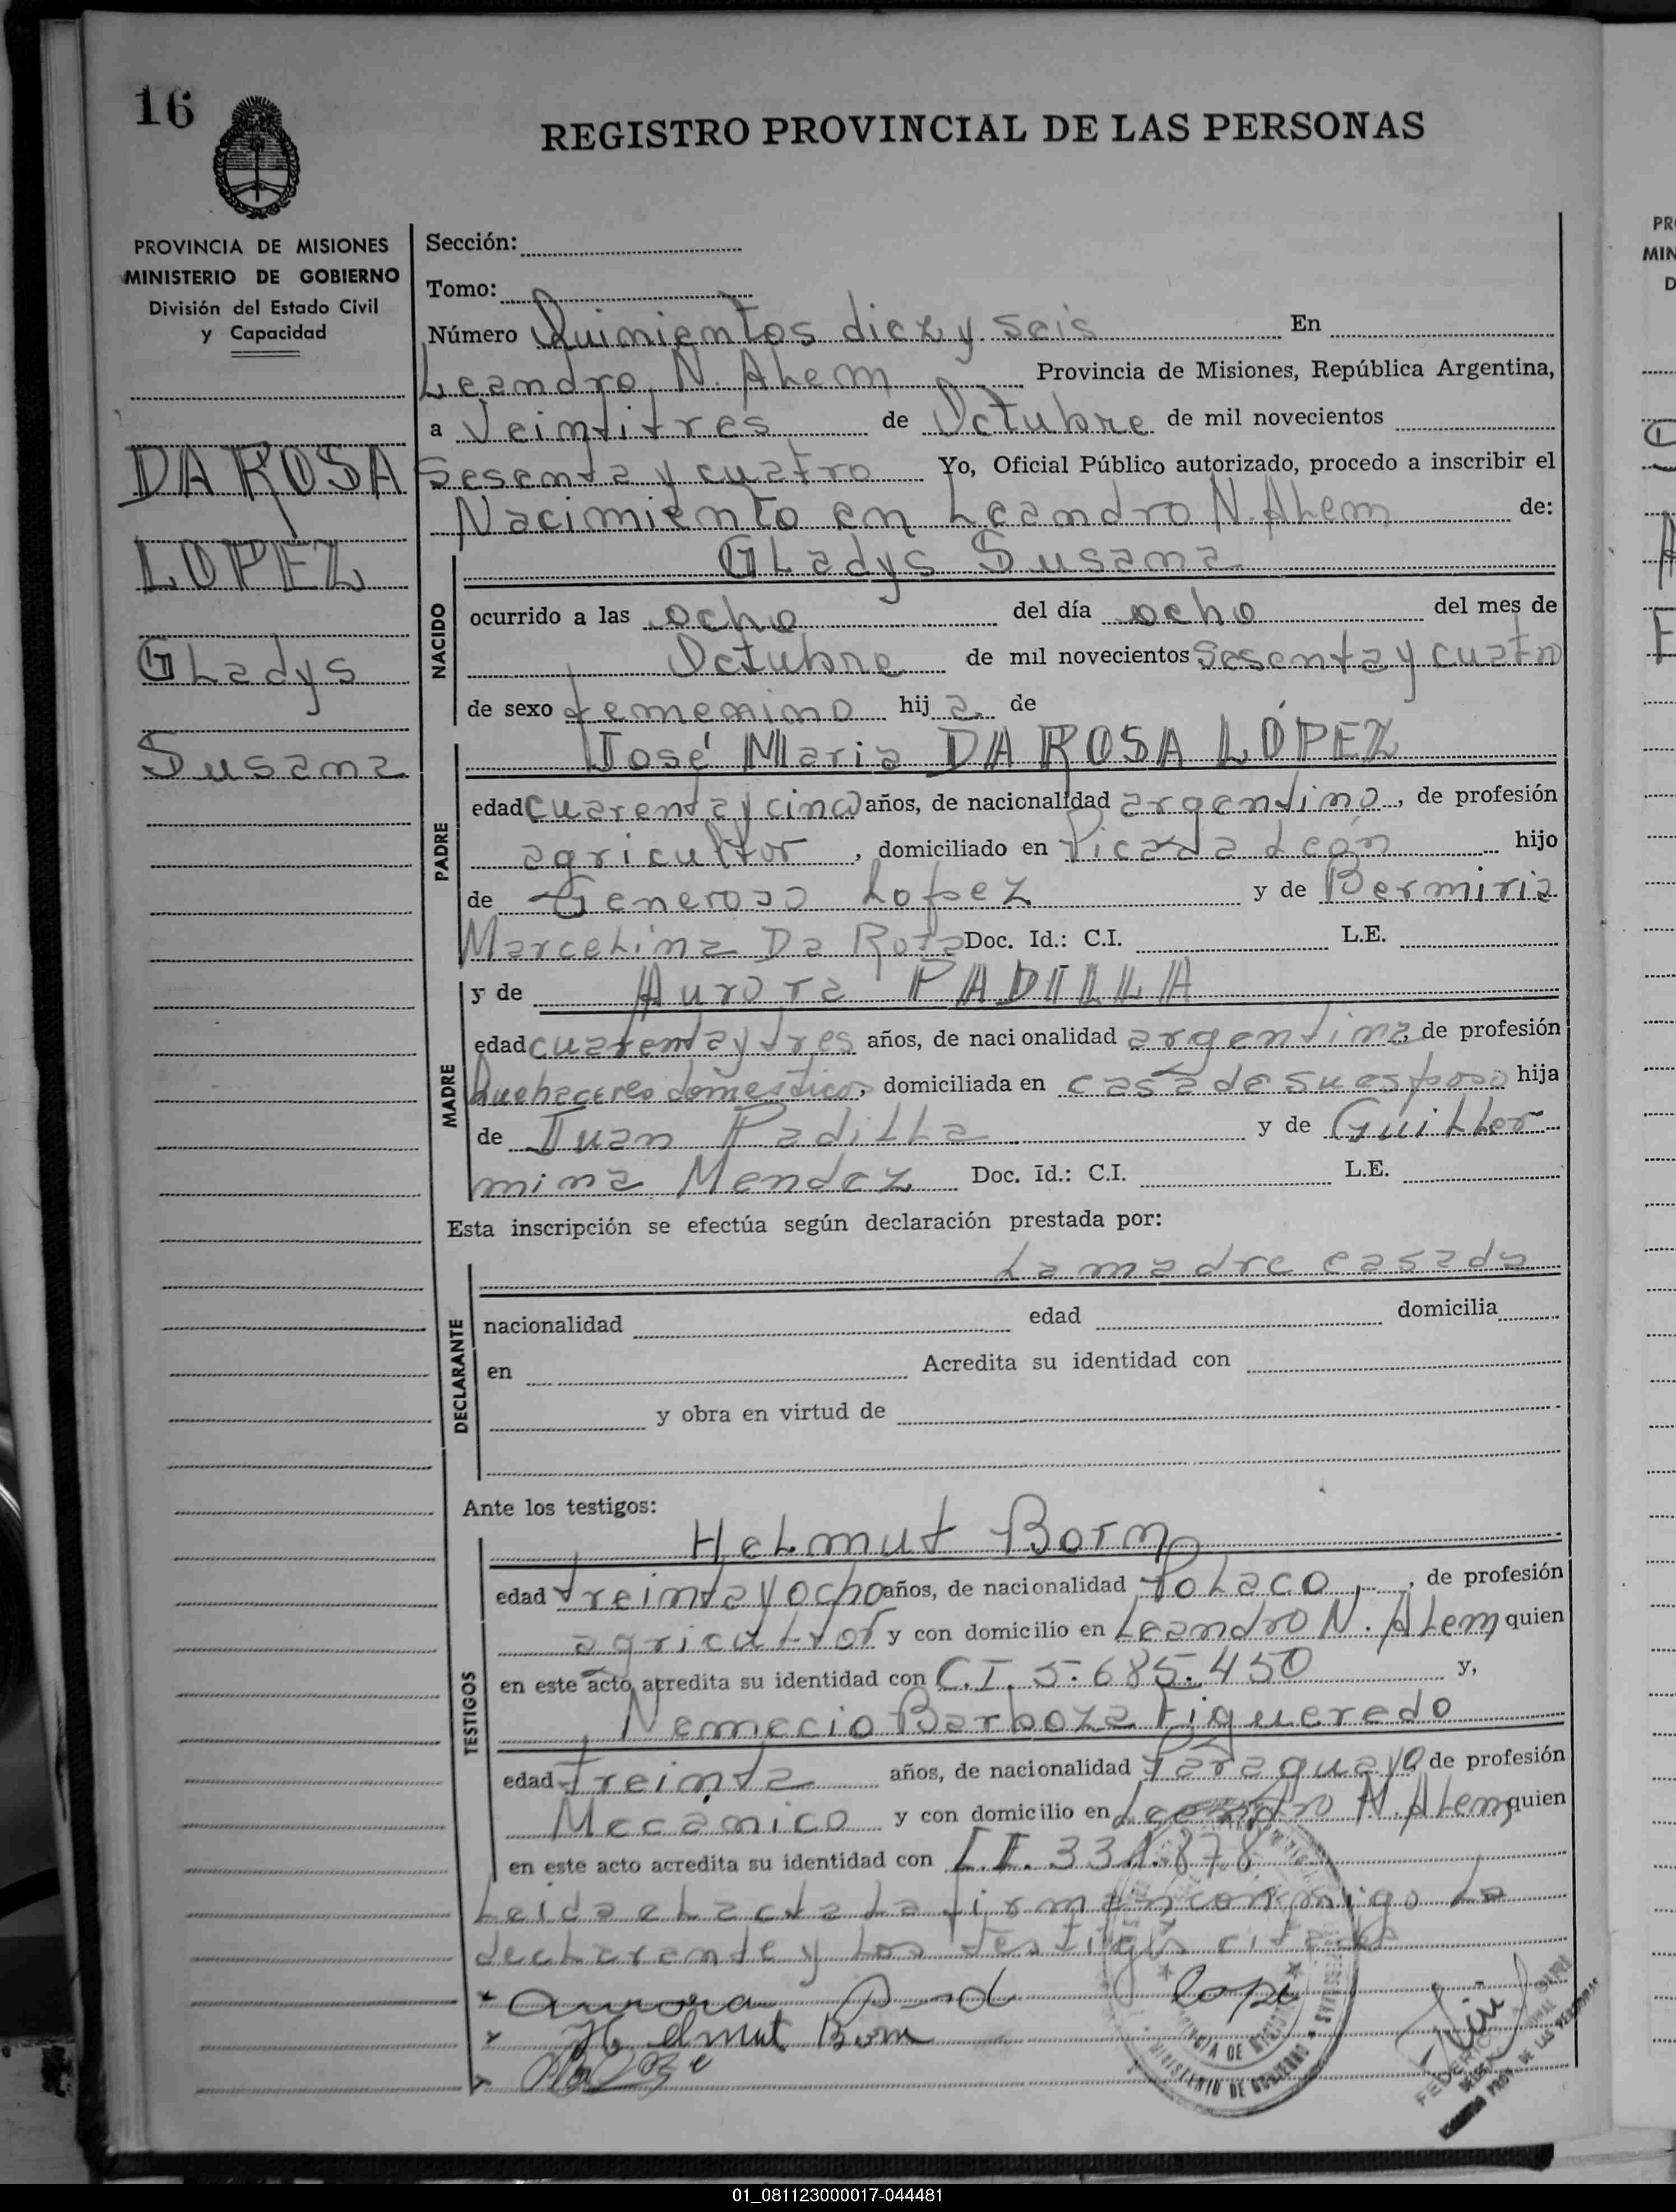 16
REGISTRO PROVINCIAL DE LAS PERSONAS
PROVINCIA DE MISIONES
MINISTERIO DE GOBIERNO
División del Estado Civil
y Capacidad
DA ROSA
LOPEZ
Gladys
Susana
Sección:
Tomo:
Número Quinientos diez y seis En
Leandro N. Alem Provincia de Misiones, República Argentina,
a Veintitres de Octubre de mil novecientos
Sesenta y cuatro Yo, Oficial Público autorizado, procedo a inscribir el
Nacimiento en Leandro N. Alem de:
Gladys Susana
NACIDO
ocurrido a las ocho del día ocho del mes de
Octubre de mil novecientos Sesenta y cuatro
de sexo femenino hija de
José Maria DA ROSA LÓPEZ
PADRE
edad cuarenta y cinco años, de nacionalidad argentino, de profesión
agricultor, domiciliado en Picada León hijo
de Generoso Lopez y de Bermiria
Marcelina Da Rosa Doc. Id.: C.I. L.E.
y de Aurora PADILLA
MADRE
edad cuarenta y tres años, de nacionalidad argentina, de profesión
Quehaceres domesticos, domiciliada en casa de su esposo hija
de Juan Padilla y de Guiller
mina Mendez Doc. Id.: C.I. L.E.
Esta inscripción se efectúa según declaración prestada por:
La madre casada
DECLARANTE
nacionalidad edad domicilia
en Acredita su identidad con
y obra en virtud de
Ante los testigos:
Helmut Born
TESTIGOS
edad treinta y ocho años, de nacionalidad Polaco, de profesión
agricultor y con domicilio en Leandro N. Alem quien
en este acto acredita su identidad con C.I. 5.685.450 y,
Nemecio Barboza Figueredo
edad treinta años, de nacionalidad Paraguayo de profesión
Mecánico y con domicilio en Leandro N. Alem quien
en este acto acredita su identidad con C.I. 331.878
Leida el acta la firman conmigo la
declarante y los testigos citados
Aurora
Helmut Born
MINISTERIO DE GOBIERNO
01_081123000017-044481